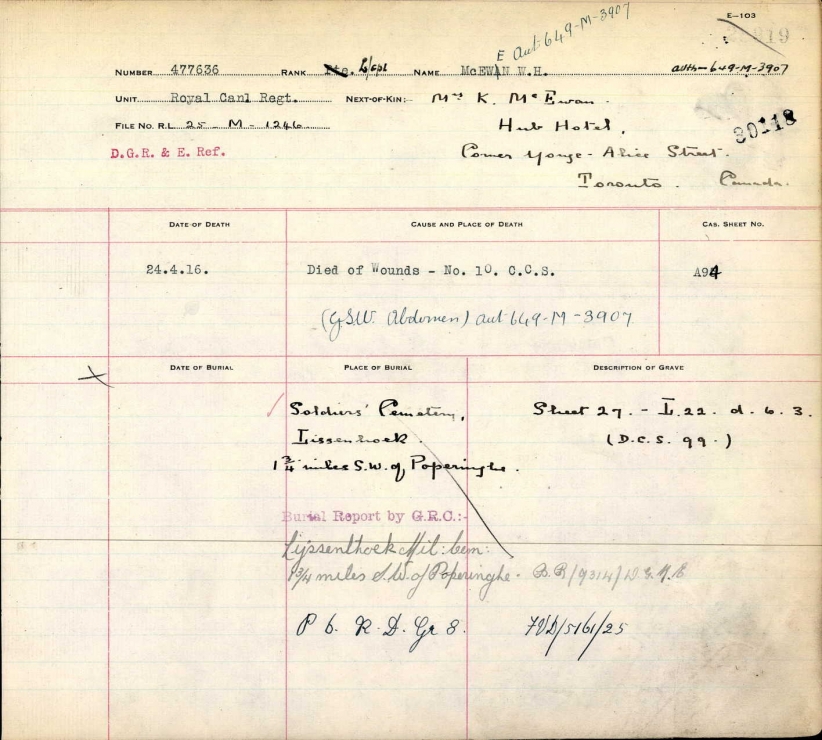 E-103
E Aut 649-M-3907
NUMBER 477636 RANK Pte. L/cpl NAME McEWAN W.H. auth-649-M-3907
UNIT Royal Canl Regt. NEXT-OF-KIN:- Mrs K. McEwan.
FILE NO. R.L. 25 - M - 1246 Hub Hotel, 30118
D.G.R. & E. Ref. Corner Yonge - Alice Street.
Toronto. Canada.
DATE OF DEATH CAUSE AND PLACE OF DEATH CAS. SHEET NO.
24.4.16. Died of Wounds - No. 10. C.C.S. A94
(GSW. Abdomen) aut 649-M-3907
DATE OF BURIAL PLACE OF BURIAL DESCRIPTION OF GRAVE
Soldiers' Cemetery, Sheet 27. - L. 22. d. 6. 3.
Lissenhoek. (D.C.S. 99.)
1 3/4 miles S.W. of Poperinghe.
Burial Report by G.R.C.:-
Lijssenthoek Mil: Cem:
1 3/4 miles S.W. of Poperinghe. B.R/9314/
P 6. R. D. Gr 8. /5161/25